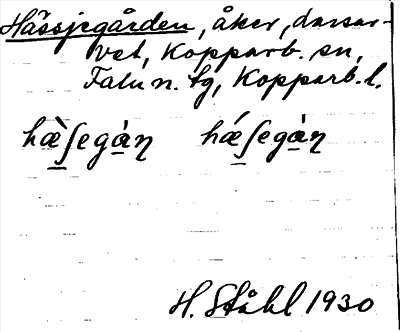 Hässjegården, åker, Aarsar-
vet, Kopparb. sn,
Falu n. tg, Kopparb. l.
hæ̀ʃegȧṇ hǽʃegàṇ
H. Ståhl 1930